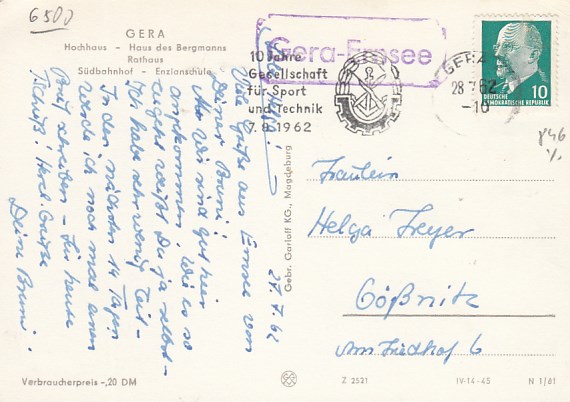 6500
GERA
Hochhaus - Haus des Bergmanns
Rathaus
Südbahnhof - Enzianschule
Gera-Ernsee
10 Jahre
Gesellschaft
für Sport
und Technik
7.8.1962
GERA
28.7.62
-10
10
DEUTSCHE
DEMOKRATISCHE REPUBLIK
846
27.7.62
Viele Grüße aus Ernsee von
Deiner Bruni!
wir sind gut hier
angekommen. Wie es so
zugeht weißt Du ja selbst-
Ich habe sehr wenig Zeit-
In den nächsten 14 Tagen
werde ich noch mal einen
Brief schreiben - Für heute
Tschüß! Herzl. Grüße
Deine Bruni.
Gebr. Garloff KG., Magdeburg
Fräulein
Helga
Gößnitz
Am Friedhof 6
Verbraucherpreis -,20 DM
Z 2521
IV-14-45
N 1/61